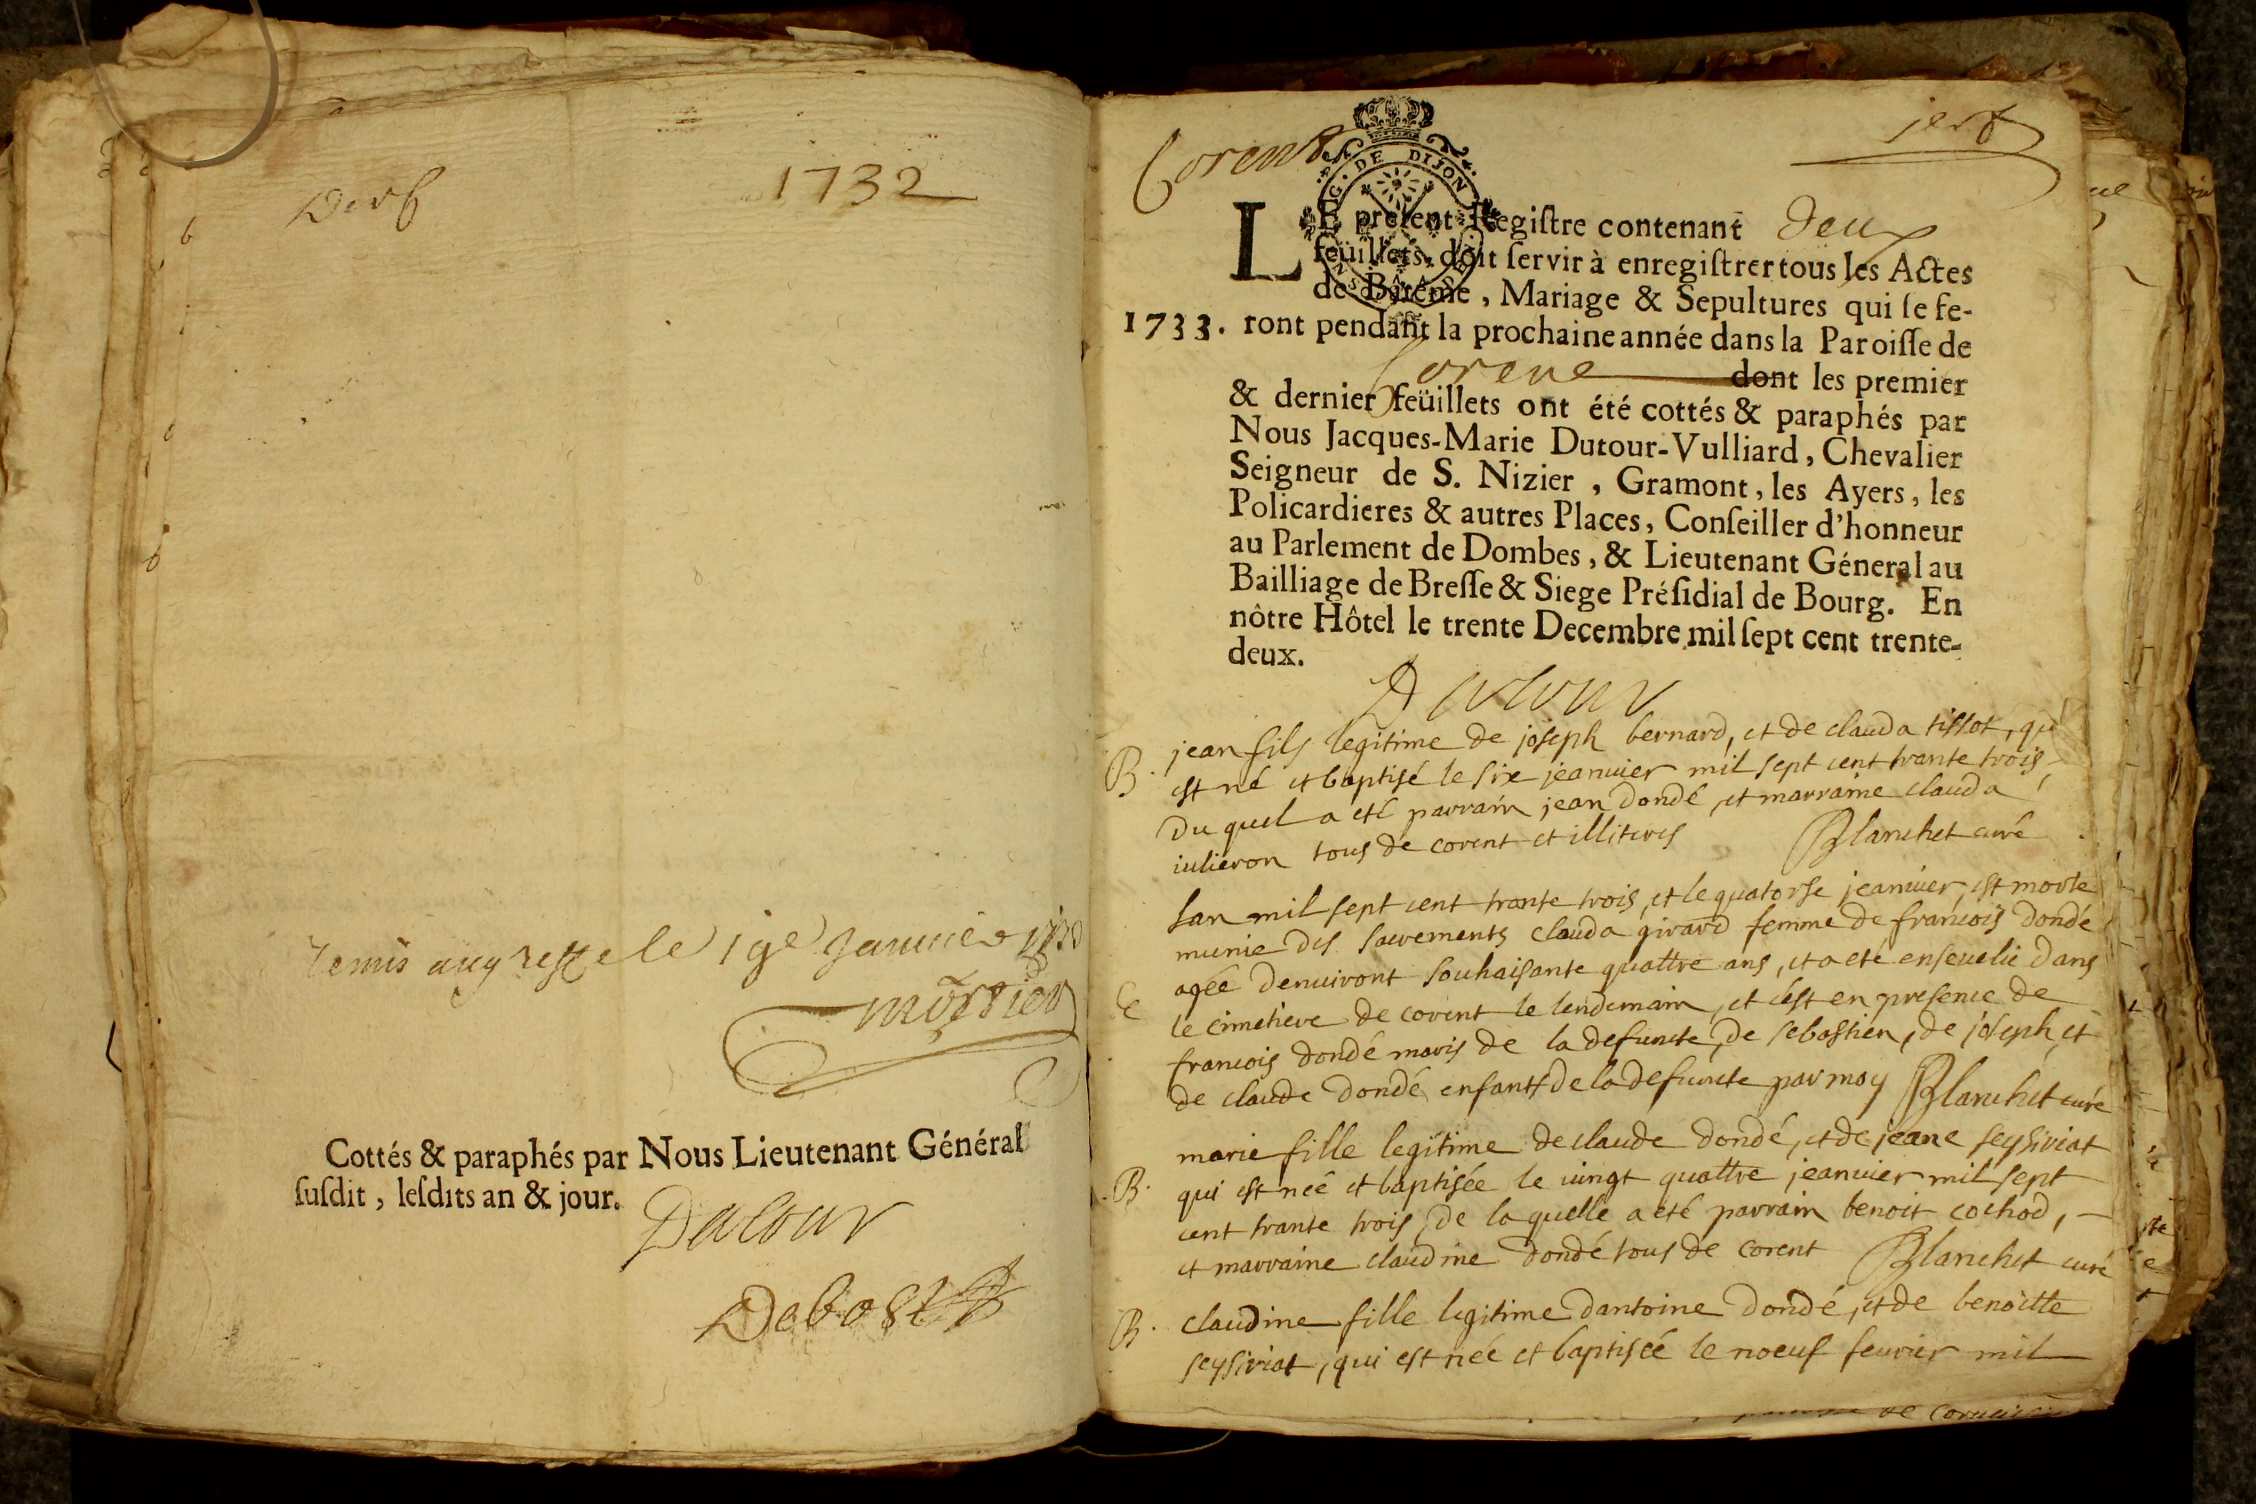 Derf
1732
Remis au greffe le 19e Janvier
mortier
Cottés & paraphés par Nous Lieutenant Général
susdit, lesdits an & jour.
Dutour
Debost
Corent
DE DIJON
LE present Registre contenant deux
feüillets, doit servir à enregistrer tous les Actes
de Batême, Mariage & Sepultures qui se fe-
1733. ront pendant la prochaine année dans la Paroisse de
Corent dont les premier
& dernier feüillets ont été cottés & paraphés par
Nous Jacques-Marie Dutour-Vulliard, Chevalier
Seigneur de S. Nizier, Gramont, les Ayers, les
Policardieres & autres Places, Conseiller d'honneur
au Parlement de Dombes, & Lieutenant Géneral au
Bailliage de Bresse & Siege Présidial de Bourg. En
nôtre Hôtel le trente Decembre mil sept cent trente-
deux.
Dutour
B. jean fils legitime de joseph bernard, et de clauda tissot, qui
est né et baptisé le six jeanvier mil sept cent trante trois,
du quel a eté parrain jean dondé, et marraine clauda
iulieron tous de corent et illiteres Blanchet curé
lan mil sept cent trante trois, et le quatorse jeanvier, est morte
munie des sacrements clauda girard femme de francois dondé
agée denuiront souhaisante quattre ans, et a eté enseuelie dans
le cimetiere de corent le lendemain, et cest en presence de
francois dondé maris de la defuncte, de sebastien, de joseph, et
de claude dondé enfants de la defuncte par moy Blanchet curé
marie fille legitime de claude dondé, et de jeane seysiriat
B. qui est née et baptisée le vingt quattre jeanvier mil sept
cent trante trois, de la quelle a eté parrain benoit cochod,
et marraine claudine dondé tous de corent Blanchet curé
B. claudine fille legitime dantoine dondé, et de benoitte
seysiriat, qui est née et baptisée le noeuf feurier mil